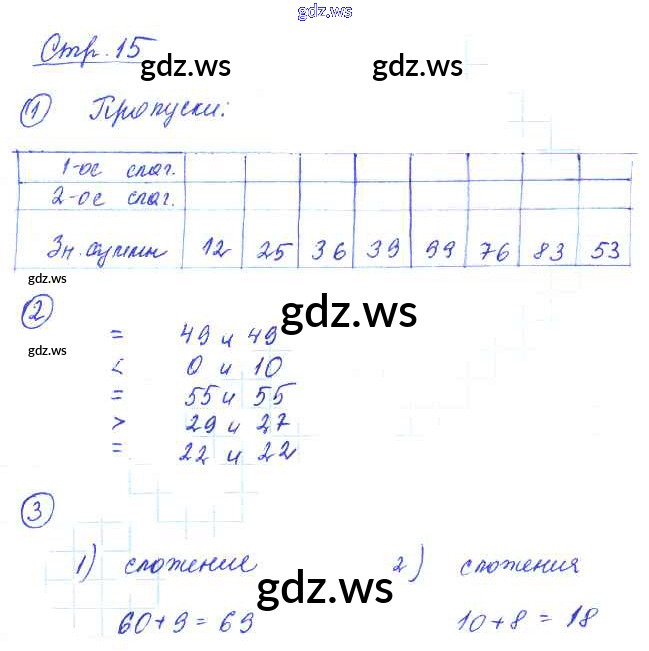 gdz.ws
Стр. 15
gdz.ws gdz.ws
1 Пропуски:
1-ое слаг.
2-ое слаг.
Зн. суммы 12 25 36 39 99 76 83 53
gdz.ws
2
gdz.ws
= 49 и 49
gdz.ws
< 0 и 10
= 55 и 55
> 29 и 27
= 22 и 22
3
1) сложение 2) сложения
gdz.ws
60+9=69 10+8=18